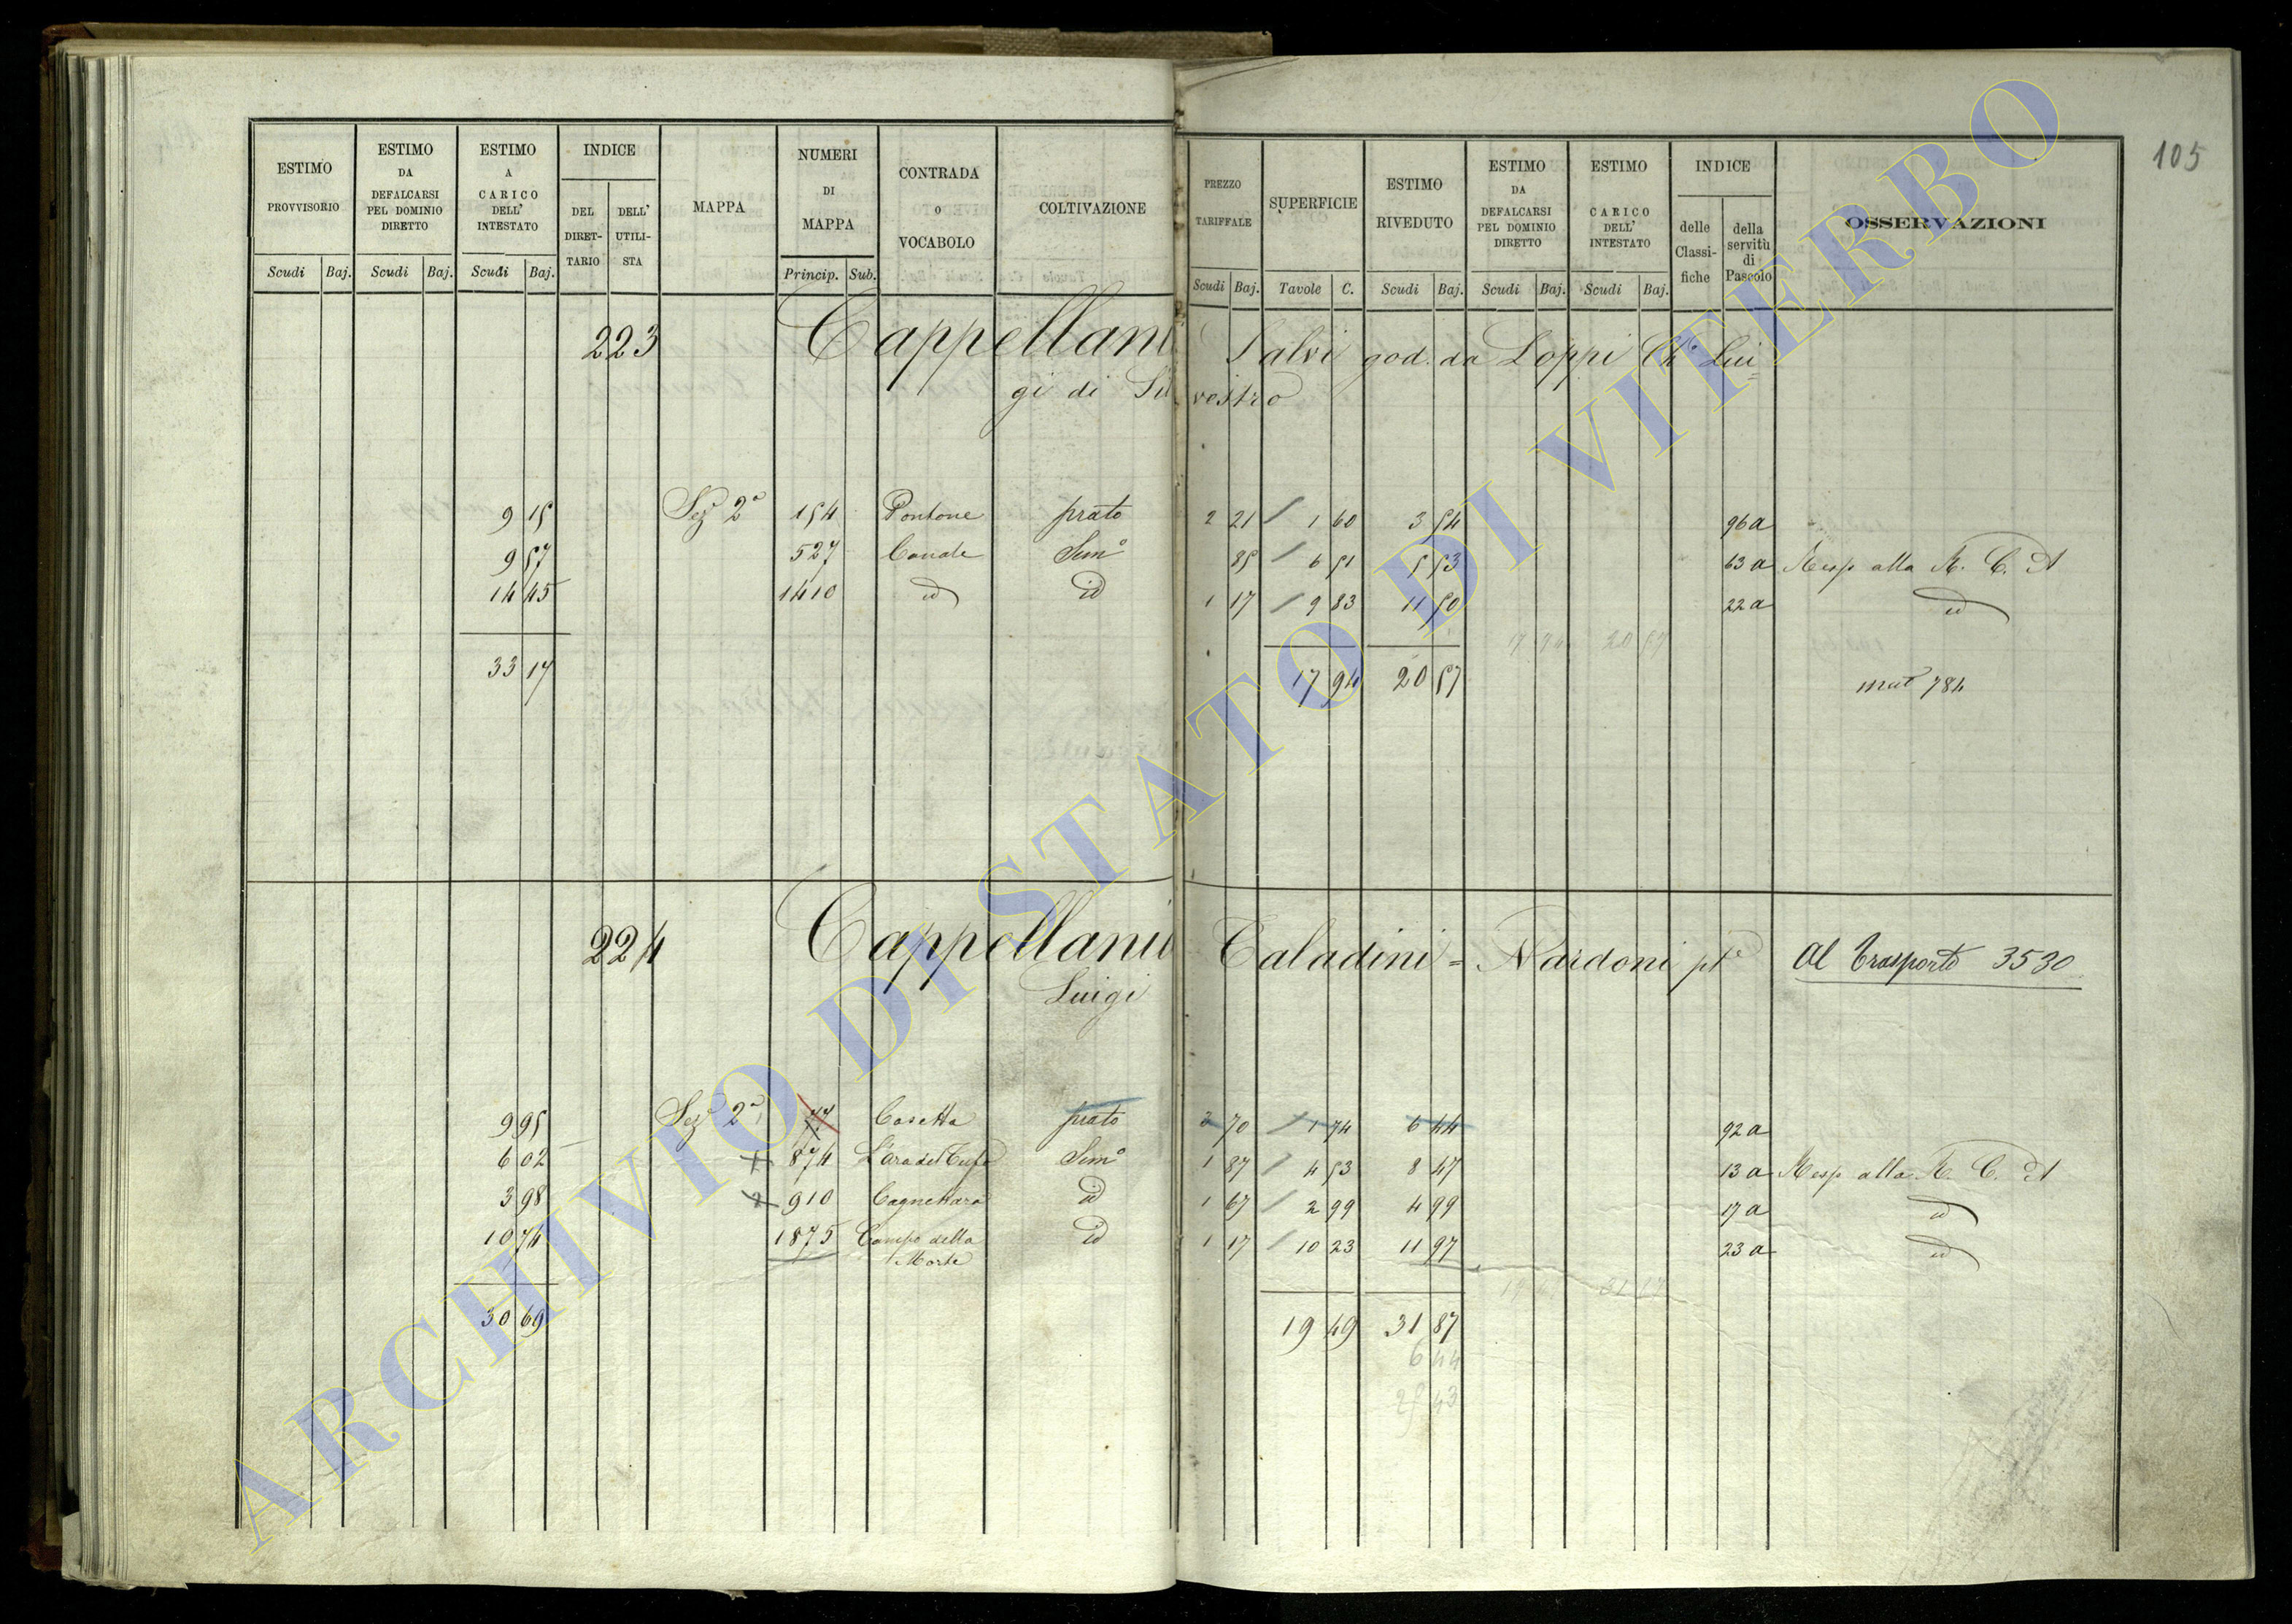 105
ESTIMO PROVVISORIO
ESTIMO DA DEFALCARSI PEL DOMINIO DIRETTO
ESTIMO A CARICO DELL' INTESTATO
INDICE
DEL DIRETTARIO
DELL' UTILISTA
MAPPA
NUMERI DI MAPPA
CONTRADA O VOCABOLO
COLTIVAZIONE
PREZZO TARIFFALE
SUPERFICIE
ESTIMO RIVEDUTO
ESTIMO DA DEFALCARSI PEL DOMINIO DIRETTO
ESTIMO CARICO DELL' INTESTATO
INDICE
delle Classifiche
della servitù di Pascolo
OSSERVAZIONI
Scudi Baj. Scudi Baj. Scudi Baj. Princip. Sub. Scudi Baj. Tavole C. Scudi Baj. Scudi Baj. Scudi Baj.
223 Cappellani Salvi god. da Loppi Lui=
gi di Silvestro
9 15 Sez 2a 154 Pontone prato 2 21 / 1 60 3 54 96 a
9 57 527 Canale Sem° 85 / 6 51 5 53 63 a Resp alla R. C. A
14 45 1410 id id 1 17 / 9 83 11 50 22 a id
33 17 17 94 20 57 mat 784
224 Cappellania Taladini = Nardoni pte Al Trasporto 3530
Luigi
9 95 Sez 2a 77 Casetta prato 3 70 / 1 74 6 44 92 a
6 02 1 874 L'Ara del Tufo Sem° 1 87 / 4 53 8 47 13 a Resp alla R. C. A
3 98 2 910 Cagnettara id 1 67 / 2 99 4 99 17 a id
10 74 1875 Campo della Morte id 1 17 / 10 23 11 97 23 a id
30 69 19 49 31 87
6 44
25 43
ARCHIVIO DI STATO DI VITERBO